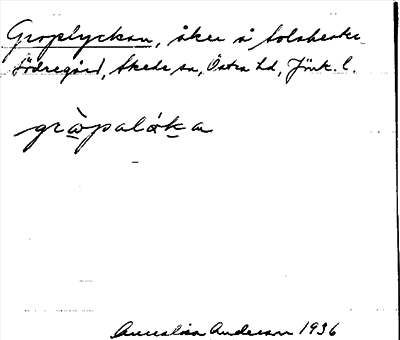 Groplyckan, åker å Solaberke
Södregård, Skede sn, Östra hd, Jönk. l.
gròpalók a
Anneslisa Anderson 1936